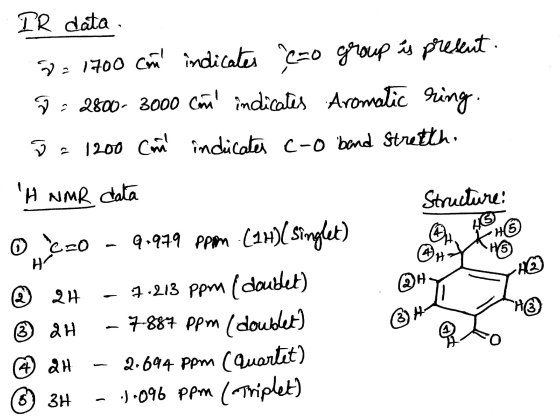 IR data.
ν̄ = 1700 cm⁻¹ indicates >C=O group is present.
ν̄ = 2800-3000 cm⁻¹ indicates Aromatic ring.
ν̄ = 1200 cm⁻¹ indicates C-O bond stretch.
¹H NMR data
① H C=O - 9.979 ppm (1H) (Singlet)
② 2H - 7.213 ppm (doublet)
③ 2H - 7.887 ppm (doublet)
④ 2H - 2.694 ppm (Quartet)
⑤ 3H - 1.096 ppm (Triplet)
Structure:
④ H H⑤ H⑤
④ H H⑤
②H H②
③H H③
① H O